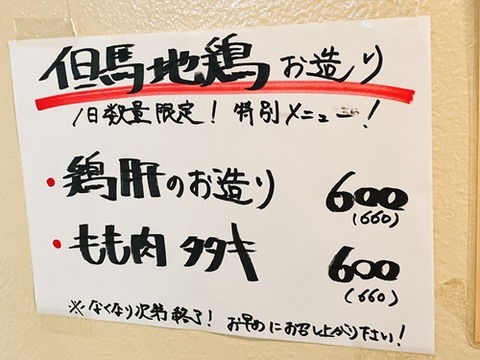 但馬地鶏お造り
1日数量限定! 特別メニュー!
・鶏肝のお造り 600
(660)
・もも肉 タタキ 600
(660)
※なくなり次第終了! お早めにお召し上がり下さい!